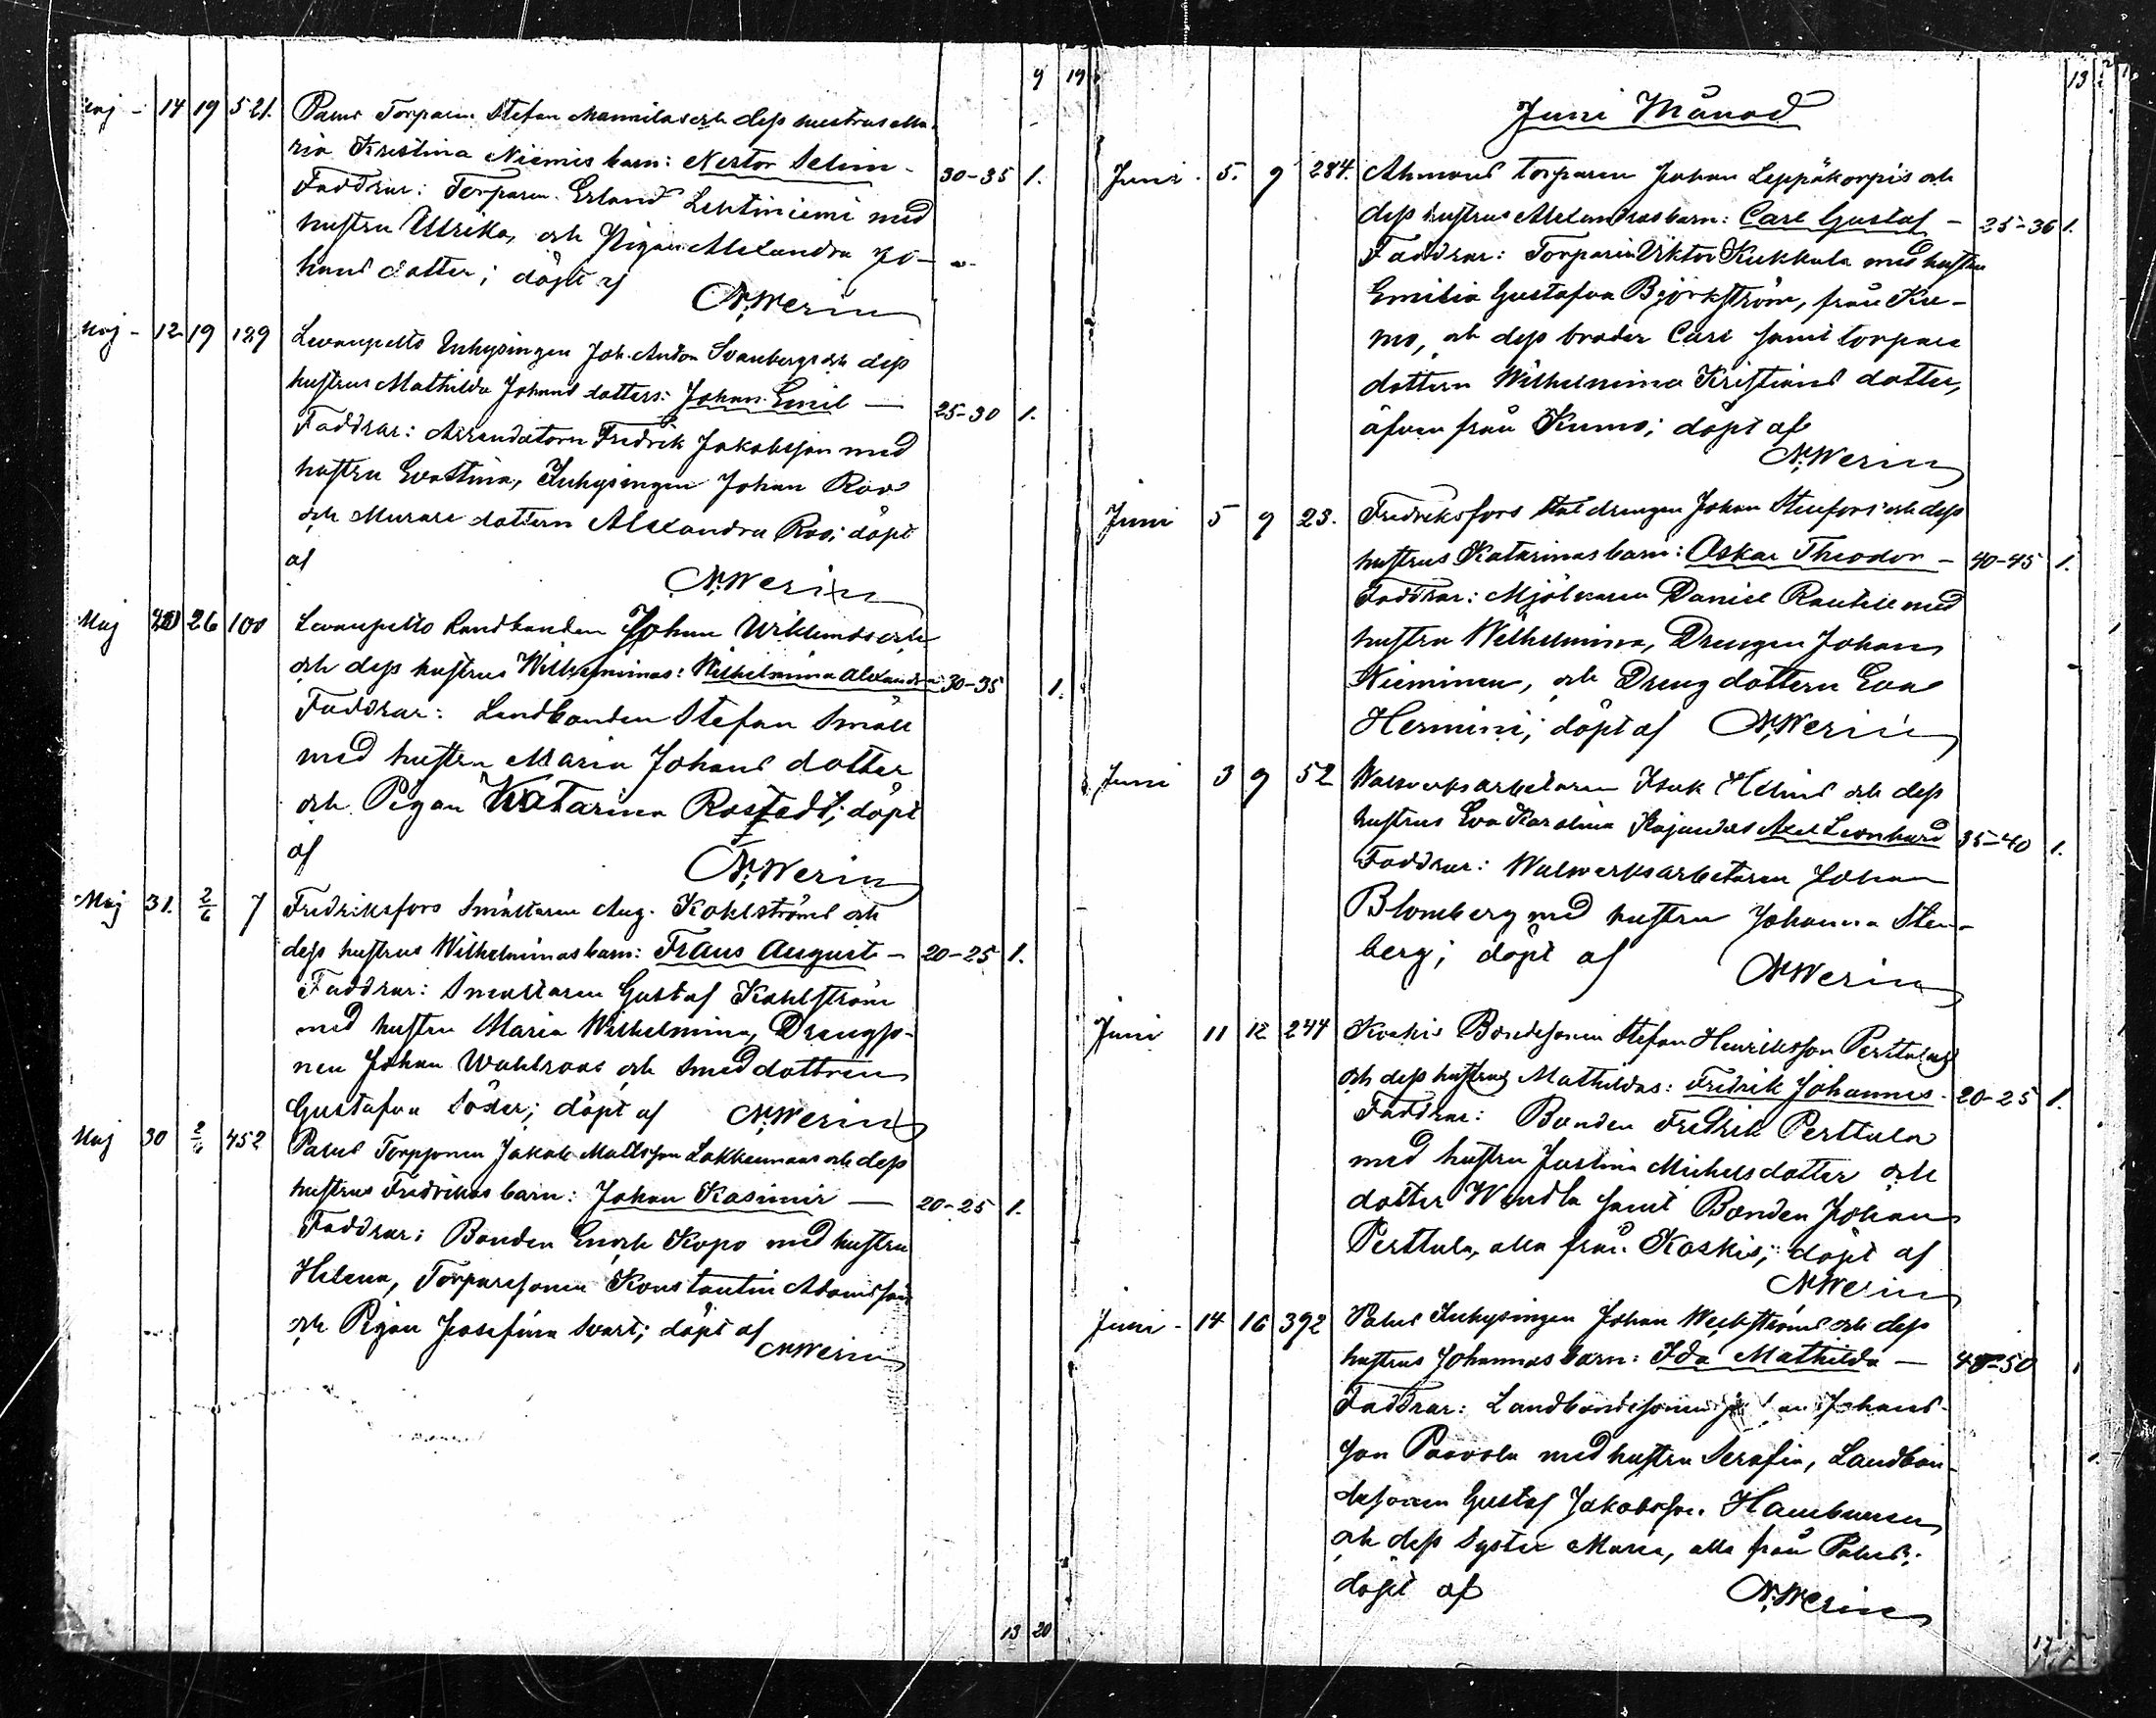 9 19
Maj - 14 19 521. Palus Torparen Stefan Mannilas och dess hustrus Ma-
ria Kristina Niemis barn: Nestor Selim - 30-35 1.
Faddrar: Torparen Erland Lehtiniemi med
hustru Ullrika, och Pigan Alexandra Jo-
hans dotter; döpt af
N. Werin
Maj - 12 19 129 Levanpelto Inhysingen Joh. Anton Svanbergs och dess
hustrus Mathilda Johans dotters: Johan Emil — 25-30 1.
Faddrar: Arrendatorn Fredrik Jakobsson med
hustru Eva Stina, Inhysingen Johan Roos
och Murare dottern Alexandra Roos; döpt
af
N. Werin
Maj 26 100 Levanpelto Landbonden Johan Wiklunds och
och dess hustrus Wilhelminas: Wilhelmina Alexandra 30-35 1.
Faddrar: Landbonden Stefan Smäll
med hustru Maria Johans dotter
och Pigan Katarina Rostedt; döpt
af
N. Werin
Maj 31. 2/6 7 Fredriksfors Smältaren Aug. Kohlströms och
dess hustrus Wilhelminas barn: Frans August - 20-25 1.
Faddrar: Smältaren Gustaf Kohlström
med hustru Maria Wilhelmina, Drengso-
nen Johan Wahlroos och Smeddottren
Gustafva Söder; döpt af N. Werin
Maj 30 2/6 452 Palus Torpsonen Jakob Mattsson Lakkenmaas och dess
hustrus Fredrikas barn: Johan Kasimir — 20-25 1.
Faddrar: Bonden Enoch Kopo med hustru
Helena, Torparesonen Konstantin Adamsson
och Pigan Josefina Svart; döpt af
N. Werin
13 20
13
Juni Månad
Juni - 5. 9 284. Ahmans torparen Johan Leppäkorpis och
dess hustrus Alexandras barn: Carl Gustaf - 25-30 1.
Faddrar: Torparen Viktor Kukkula med hustru
Emilia Gustafva Björkström, från Ku-
mo, och dess broder Carl samt torpare
dottern Wilhelmina Kristians dotter,
äfven från Kumo; döpt af
N. Werin
Juni 5 9 23. Fredriksfors Stal drengen Johan Stenfors och dess
hustrus Katarinas barn: Oskar Theodor - 40-45 1.
Faddrar: Mjölnaren Daniel Rautell med
hustru Wilhelmina, Drengen Johan
Nieminen, och Dreng dottern Eva
Hermini; döpt af N. Werin
Juni 3 9 52 Walsverksarbetaren Isak Helins och dess
hustrus Eva Karolina Kajanders Axel Leonhard 35-40 1.
Faddrar: Walsverksarbetaren Johan
Blomberg med hustru Johanna Sten-
berg; döpt af
N. Werin
Juni 11 12 244 Koskis Bondesonen Stefan Henriksson Perttulas
och dess hustrus Mathildas: Fredrik Johannes - 20-25 1.
Faddrar: Bonden Fredrik Perttula
med hustru Justina Michelsdotter och
dotter Wendla samt Bonden Johan
Perttula, alla från Koskis; döpt af
N. Werin
Juni - 14 16 392 Palus Inhysingen Johan Weckströms och dess
hustrus Johannas barn: Ida Mathilda — 45-50 1
Faddrar: Landbondesonen Johans-
son Paavola med hustru Serafin, Landbon-
desonen Gustaf Jakobsson Hamburen
och dess Syster Maria, alla från Palus;
döpt af
N. Werin